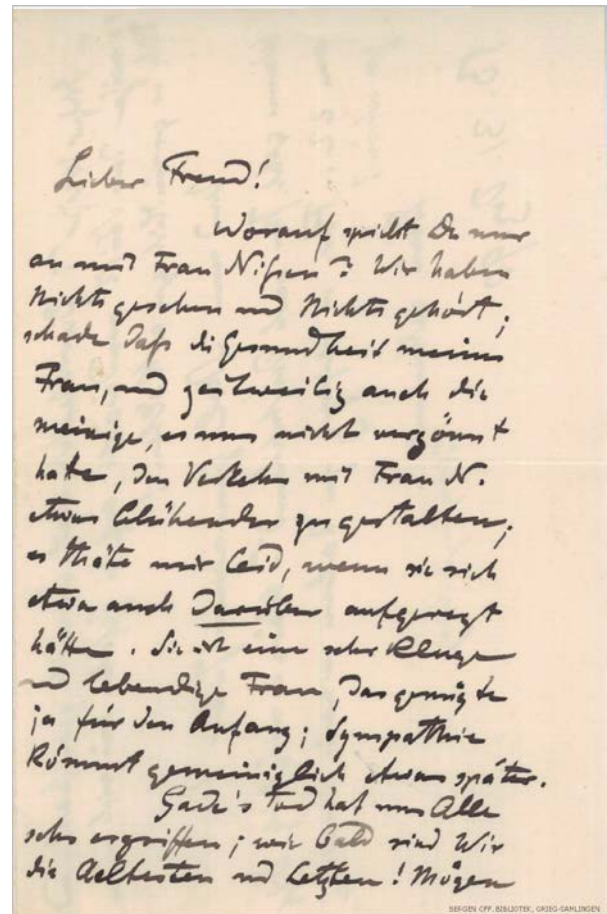 Lieber Freund!
Worauf spielst Du nur
an mit Frau Nißen? Wir haben
Nichts gesehen und Nichts gehört;
schade daß die Gesundheit meiner
Frau, und zeitweilig auch die
meinige, es uns nicht vergönnt
hatte, den Verkehr mit Frau N.
etwas blühender zu gestalten;
es thäte mir Leid, wenn sie sich
etwa auch darüber aufgeregt
hätte. Sie ist eine sehr kluge
und lebendige Frau, das genügte
ja für den Anfang; Sympathie
kömmt gemeiniglich etwas später.
Gade's Tod hat uns Alle
sehr ergriffen; wie bald sind Wir
die Aeltesten und Letzten! Mögen
BERGEN OFF. BIBLIOTEK, GRIEG-SAMLINGEN